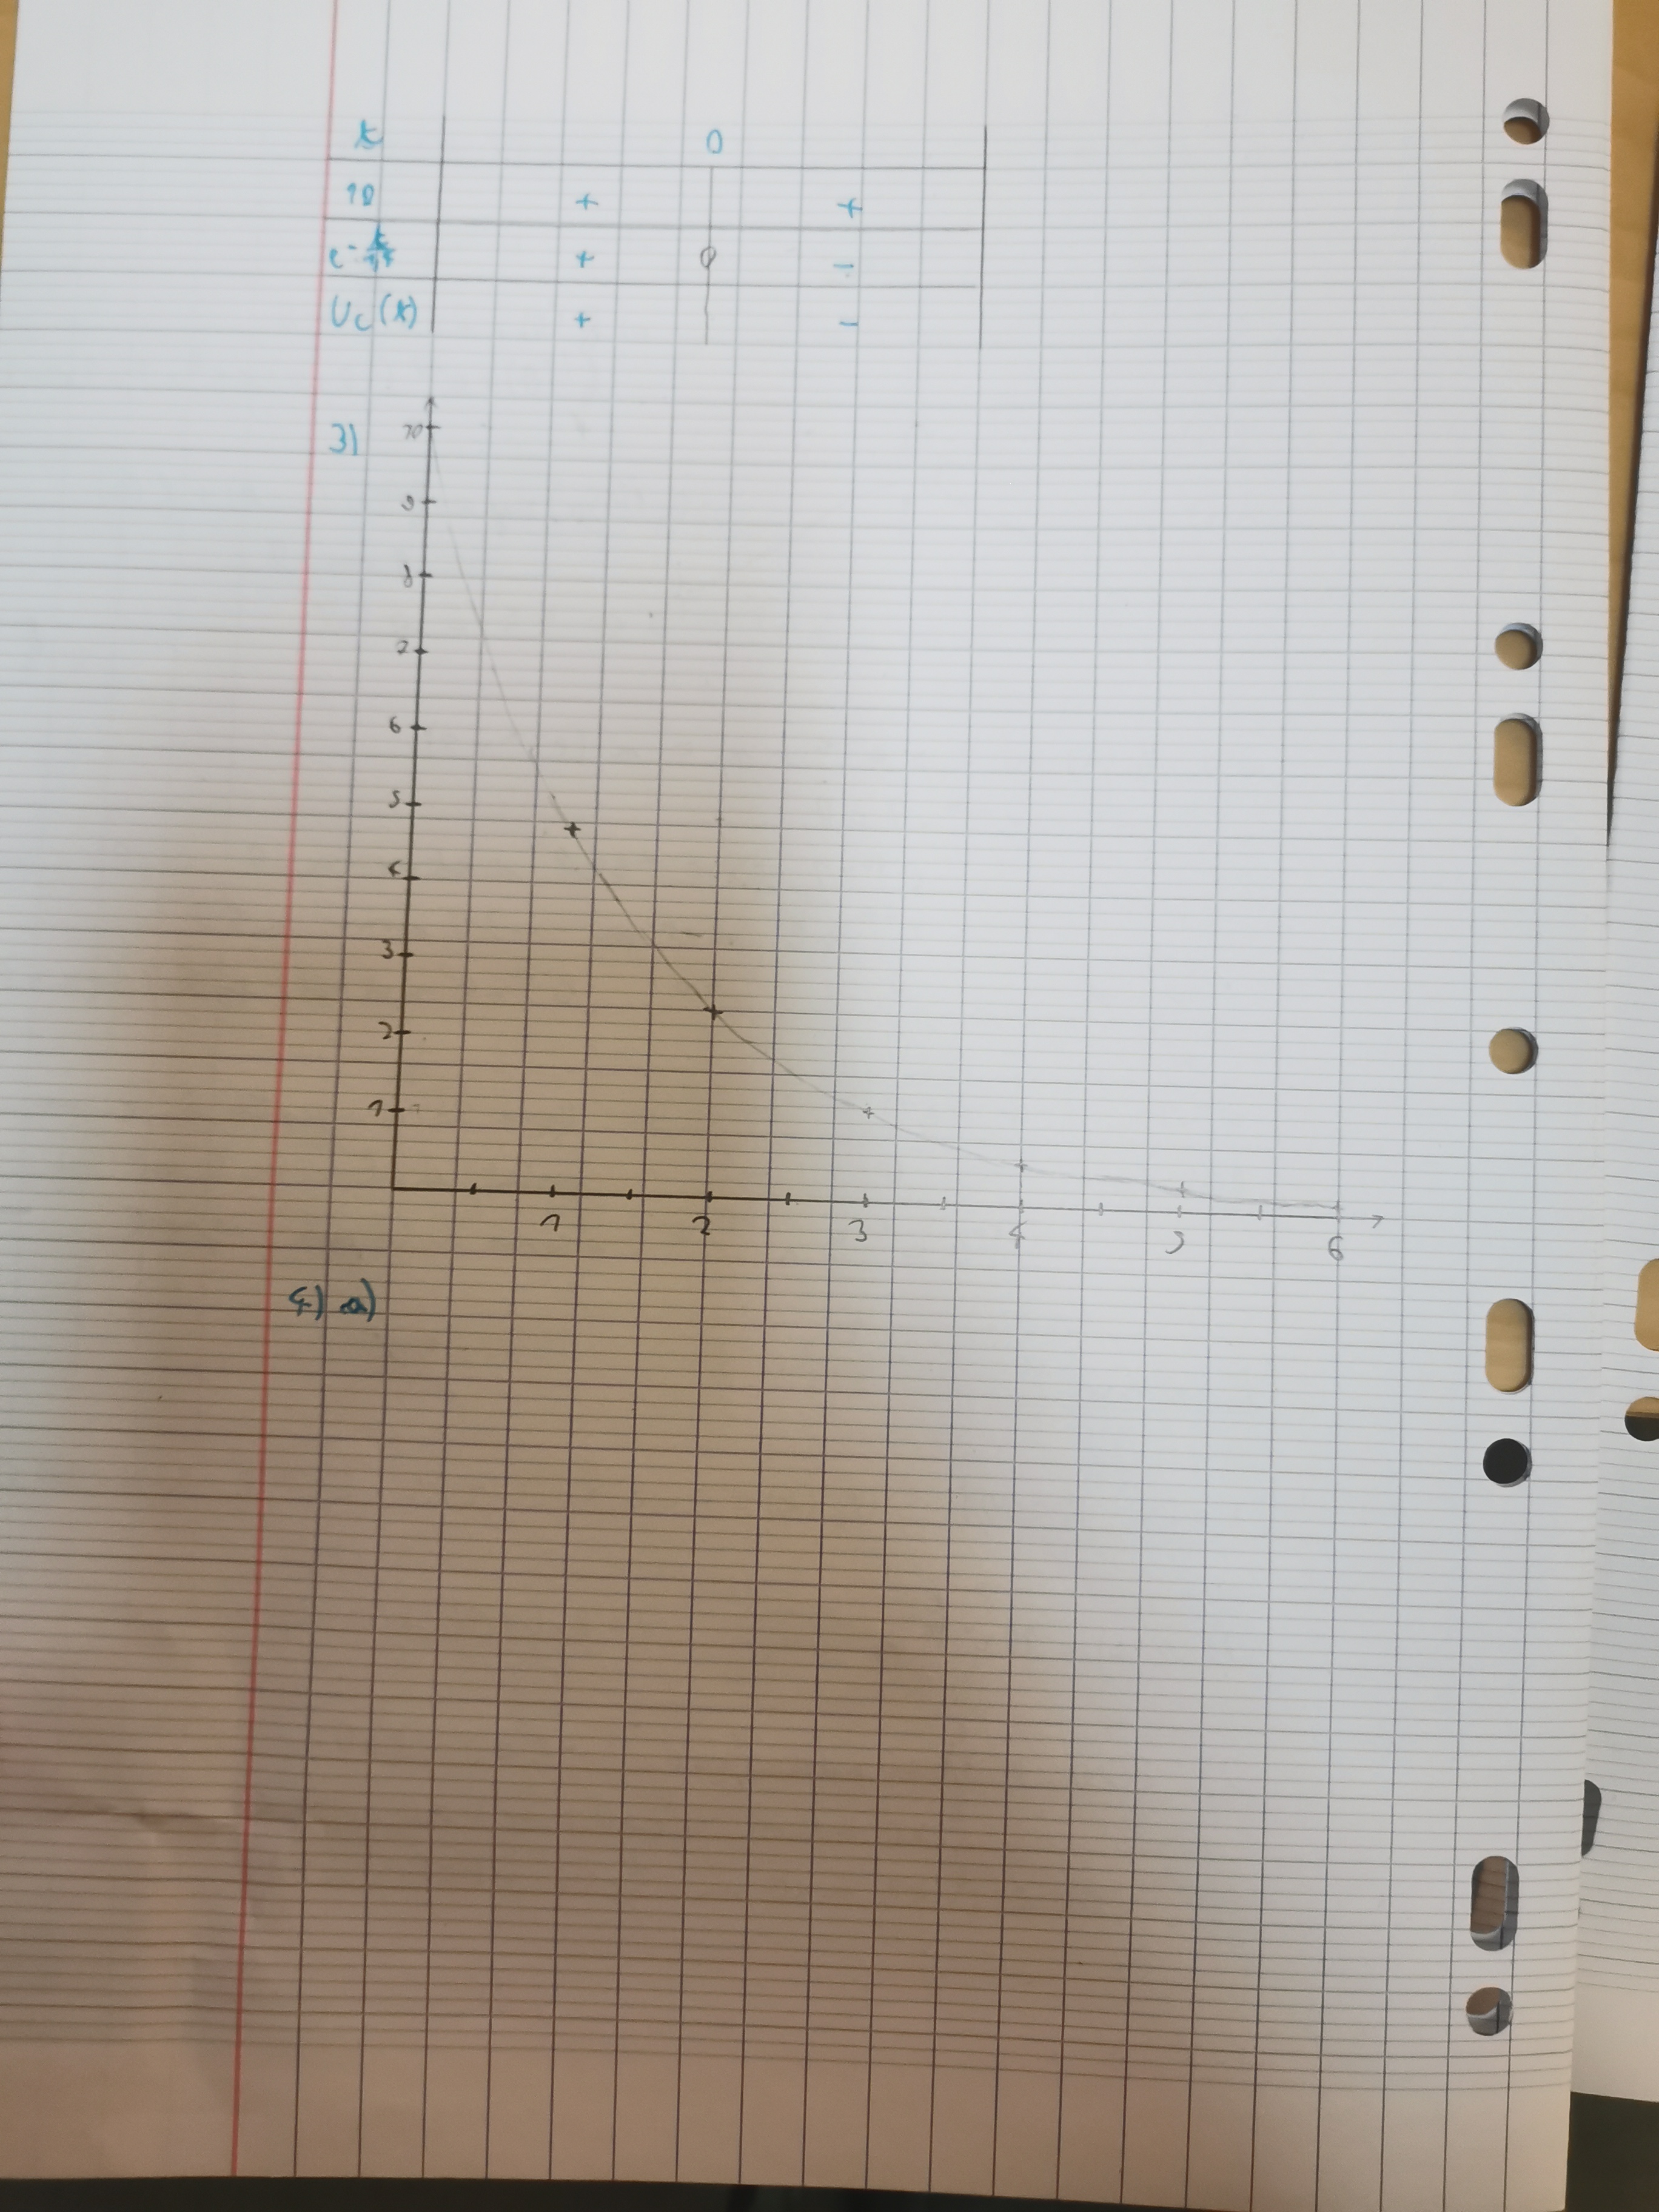 t 0
10 + +
e^-t/1,4 + 0 -
Uc(t) + -
3)
10
9
8
7
6
5
4
3
2
1
1 2 3 4 5 6
4) a)